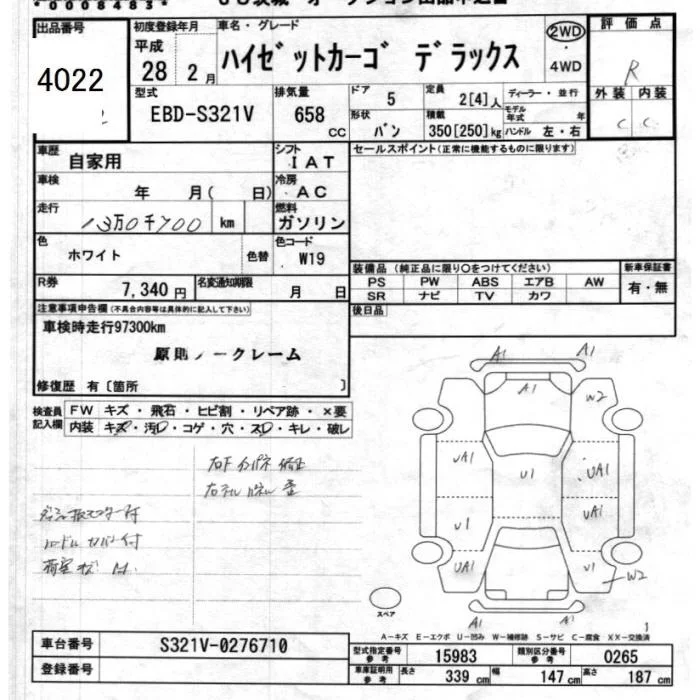 *0008483*
出品番号
4022
初度登録年月
平成
28 2月
車名・グレード
ハイゼットカーゴ デラックス
2WD
・
4WD
評価点
R
外装 内装
C C
型式
EBD-S321V
排気量
658
CC
ドア
5
定員
2[4]人
ディーラー・並行
モデル年式 年
形状
バン
積載
350[250]kg
ハンドル 左・右
車歴
自家用
シフト
IAT
車検
年 月( 日)
冷房
AC
走行
13万0千700 km
燃料
ガソリン
色
ホワイト
色替
色コード
W19
R券
7,340円
名変通知期限
月 日
セールスポイント(正常に機能するものに限ります)
装備品(純正品に限り○をつけてください)
新車保証書
PS PW ABS エアB AW
SR ナビ TV カワ
有・無
後日品
注意事項申告欄(不具合内容等は具体的に記入して下さい)
車検時走行97300km
原則ノークレーム
修復歴 有〔箇所 〕
検査員記入欄
FW キズ・飛石・ヒビ割・リペア跡・×要
内装 キズ・汚レ・コゲ・穴・スレ・キレ・破レ
A1 A1
A1
W2
UA1 U1 UA1
U1 UA1
UA1 U1
W2
A1 A1
スペア
A-キズ E-エクボ U-凹み W-補修跡 S-サビ C-腐食 XX-交換済
車台番号
S321V-0276710
登録番号
型式指定番号 参考
15983
類別区分番号 参考
0265
車庫証明用 参考
長さ 339 cm 幅 147 cm 高さ 187 cm